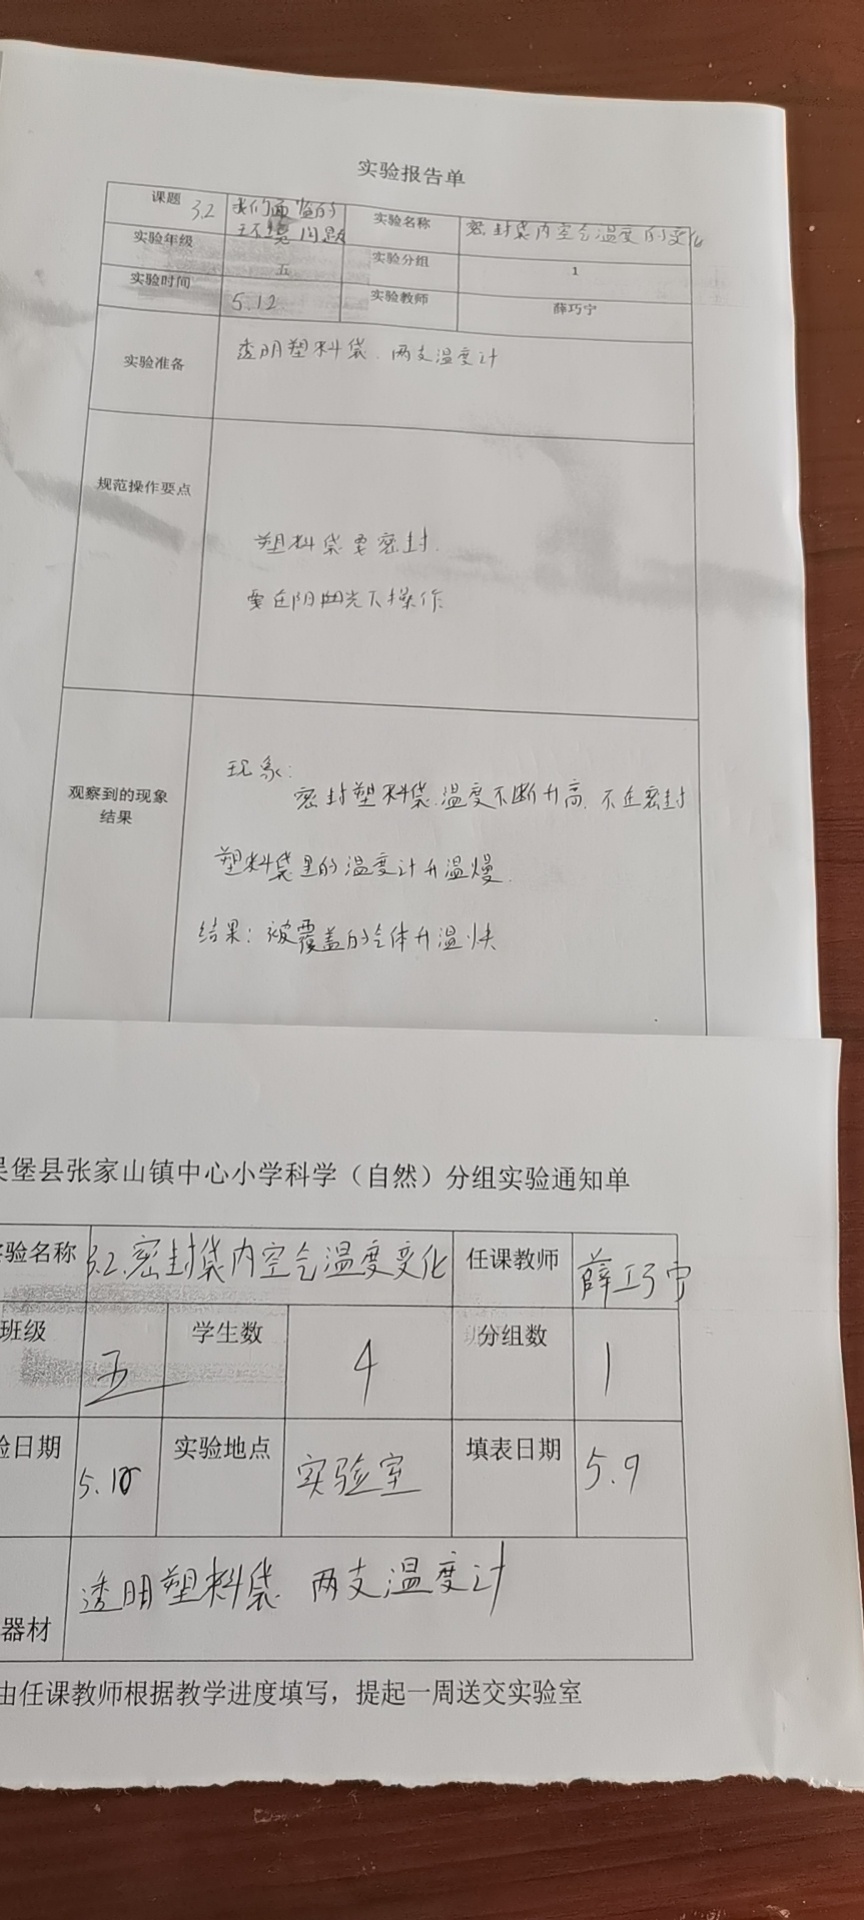 实验报告单
课题 3.2 我们面临的
环境问题
实验名称 密封袋内空气温度的变化
实验年级 五 实验分组 1
实验时间 5.12 实验教师 薛巧宁
实验准备 透明塑料袋、两支温度计
规范操作要点
塑料袋要密封.
要在阳光下操作
观察到的现象
结果
现象:
密封塑料袋.温度不断升高,不在密封
塑料袋里的温度计升温慢.
结果:被覆盖的气体升温快
吴堡县张家山镇中心小学科学(自然)分组实验通知单
验名称 3.2.密封袋内空气温度变化 任课教师 薛巧宁
班级 五 学生数 4 分组数 1
验日期 实验地点 实验室 填表日期 5.9
器材 透明塑料袋、两支温度计
由任课教师根据教学进度填写,提起一周送交实验室